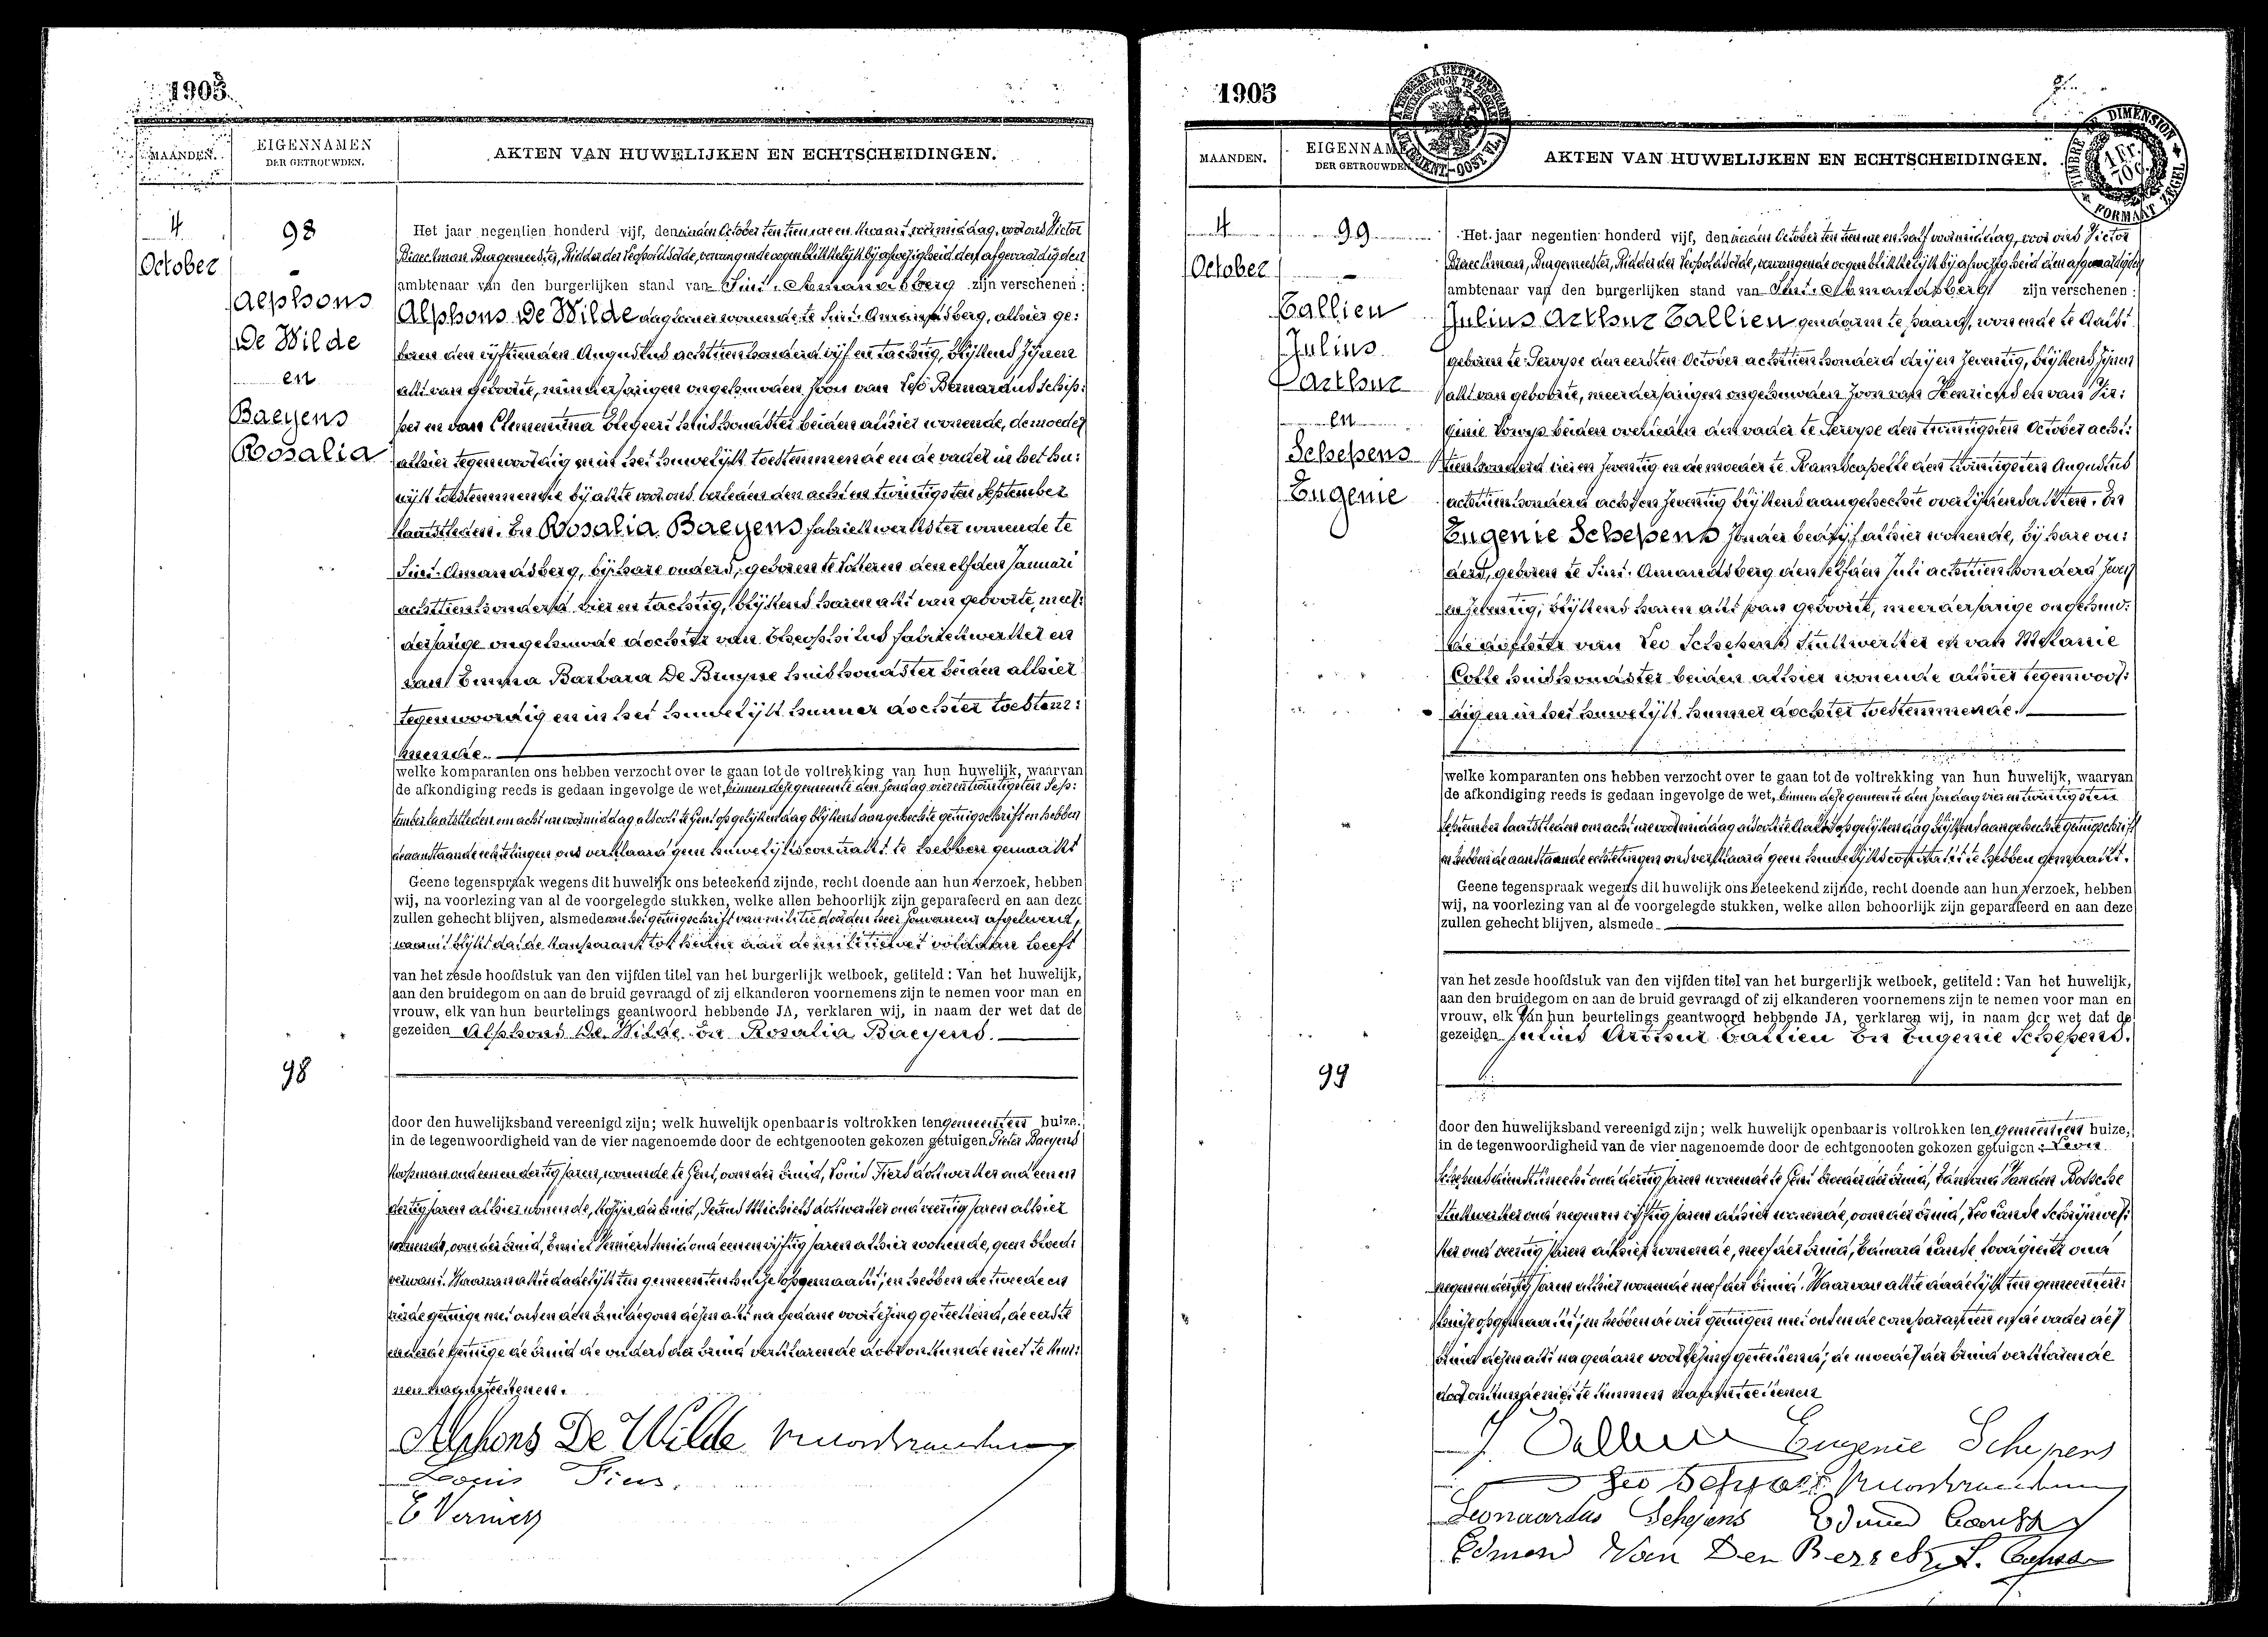 1905
MAANDEN.
EIGENNAMEN
DER GETROUWDEN.
AKTEN VAN HUWELIJKEN EN ECHTSCHEIDINGEN.
4
October
98
Alphons
De Wilde
en
Baeyens
Rosalia
Het jaar negentien honderd vijf, den vierden October ten tien ure en kwaart voormiddag, voor ons Victor
Braeckman Burgemeester, Ridder der Leopoldsorde, vervangende oogenblikkelijk bij afwezigheid den afgevaardigden
ambtenaar van den burgerlijken stand van Sint-Amandsberg zijn verschenen:
Alphons De Wilde dagloner wonende te Sint-Amandsberg, alhier ge:
boren den vijftienden Augustus achttien honderd vijf en tachtig, blijkens zijnen
akt van geboorte, minderjarigen ongehuwden zoon van Bernardus schip:
per en van Clementina huishoudster beiden alhier wonende, de moeder
alhier tegenwoordig en in het huwelijk toestemmende en de vader in het hu:
welijk toestemmende bij akte voor ons verleden den acht en twintigsten September
laatstleden. En Rosalia Baeyens fabriekwerkster wonende te
Sint-Amandsberg, bij hare ouders, geboren te Lotteren den elfden Januari
achttien honderd vier en tachtig, blijkens haren akt van geboorte, meer:
derjarige ongehuwde dochter van Theophilus fabriekwerker en
van Emma Barbara De Bruyne huishoudster beiden alhier
tegenwoordig en in het huwelijk hunner dochter toestem:
mende.
welke komparanten ons hebben verzocht over te gaan tot de voltrekking van hun huwelijk, waarvan
de afkondiging reeds is gedaan ingevolge de wet, binnen deze gemeente den zondag vier en twintigsten Sep:
tember laatstleden om acht ure voormiddag alsook te Gent op gelijken dag blijkens aangehechte getuigschrift en hebben
de aanstaande echtelingen ons verklaard geen huwelijkscontrakt te hebben gemaakt
Geene tegenspraak wegens dit huwelijk ons beteekend zijnde, recht doende aan hun verzoek, hebben
wij, na voorlezing van al de voorgelegde stukken, welke allen behoorlijk zijn geparafeerd en aan deze
zullen gehecht blijven, alsmede van het getuigschrift van militie door den heer Gouverneur afgeleverd,
waaruit blijkt dat de komparant tot heden aan de militiewet voldaan heeft
van het zesde hoofdstuk van den vijfden titel van het burgerlijk wetboek, getiteld: Van het huwelijk,
aan den bruidegom en aan de bruid gevraagd of zij elkanderen voornemens zijn te nemen voor man en
vrouw, elk van hun beurtelings geantwoord hebbende JA, verklaren wij, in naam der wet dat de
gezeiden Alphons De Wilde En Rosalia Baeyens.
98
door den huwelijksband vereenigd zijn; welk huwelijk openbaar is voltrokken ten gemeenten huize.
in de tegenwoordigheid van de vier nagenoemde door de echtgenooten gekozen getuigen Pieter Baeyens
koopman oud een en dertig jaren, wonende te Gent, oom der bruid, Louis Fiers dokwerker oud een en
dertig jaren alhier wonende, kozijn der bruid, Michiels dokwerker oud veertig jaren alhier
wonende, oom der bruid, Emiel Vermiers smid oud een en vijftig jaren alhier wonende, geen bloed:
verwant. Waarvan akte dadelijk ten gemeentenhuize opgemaakt, en hebben de tweede en
vierde getuige met ons en den bruidegom dezen akt na gedane voorlezing geteekend, de eerste
en derde getuige de bruid de ouders der bruid verklarende door onkunde niet te kun:
nen naamteekenen.
Alphons De Wilde
Louis Fiers.
E Vermiers
1905
MAANDEN.
EIGENNAMEN
DER GETROUWDEN.
AKTEN VAN HUWELIJKEN EN ECHTSCHEIDINGEN.
TIMBRE DE DIMENSION
1 Fr.
70 c.
FORMAAT ZEGEL
4
October
99
Callien
Julius
Arthur
en
Schepens
Eugenie
Het jaar negentien honderd vijf, den vierden October ten tien ure en half voormiddag, voor ons Victor
Braeckman, Burgemeester, Ridder der Leopoldsorde, vervangende oogenblikkelijk bij afwezigheid den afgevaardigden
ambtenaar van den burgerlijken stand van Sint-Amandsberg zijn verschenen:
Julius Arthur Callien gendarm te paard, wonende te Aalst
geboren te Pervyse den eersten October achttien honderd drij en zeventig, blijkens zijnen
akt van geboorte, meerderjarigen ongehuwden zoon van Henricus en van Vir:
ginie beiden overleden den vader te Pervyse den twintigsten October acht:
tien honderd vier en zeventig en de moeder te Ramscapelle den twintigsten Augustus
achttien honderd acht en zeventig blijkens aangehechte overlijdensakten. En
Eugenie Schepens zonder bedrijf alhier wonende, bij hare ou:
ders, geboren te Sint-Amandsberg den elfden Juli achttien honderd zeven
en zeventig, blijkens haren akt van geboorte, meerderjarige ongehuw:
de dochter van Leo Schepens stukwerker en van Melanie
Cotte huishoudster beiden alhier wonende alhier tegenwoor:
dig en in het huwelijk hunner dochter toestemmende.
welke komparanten ons hebben verzocht over te gaan tot de voltrekking van hun huwelijk, waarvan
de afkondiging reeds is gedaan ingevolge de wet, binnen deze gemeente den zondag vier en twintigsten
September laatstleden om acht ure voormiddag alsook te Aalst op gelijken dag blijkens aangehechte getuigschrift
en hebben de aanstaande echtelingen ons verklaard geen huwelijkscontrakt te hebben gemaakt.
Geene tegenspraak wegens dit huwelijk ons beteekend zijnde, recht doende aan hun verzoek, hebben
wij, na voorlezing van al de voorgelegde stukken, welke allen behoorlijk zijn geparafeerd en aan deze
zullen gehecht blijven, alsmede
van het zesde hoofdstuk van den vijfden titel van het burgerlijk wetboek, getiteld: Van het huwelijk,
aan den bruidegom en aan de bruid gevraagd of zij elkanderen voornemens zijn te nemen voor man en
vrouw, elk van hun beurtelings geantwoord hebbende JA, verklaren wij, in naam der wet dat de
gezeiden Julius Arthur Callien En Eugenie Schepens.
99
door den huwelijksband vereenigd zijn; welk huwelijk openbaar is voltrokken ten gemeenten huize,
in de tegenwoordigheid van de vier nagenoemde door de echtgenooten gekozen getuigen: Leon
Schepens oud dertig jaren wonende te Gent broeder der bruid, Edmond Van den Bossche
stukwerker oud negen en vijftig jaren alhier wonende, oom der bruid, Leo Cande Schrijnwer:
ker oud veertig jaren alhier wonende, neef der bruid, Edmard Cande, loodgieter oud
negen en dertig jaren alhier wonende neef der bruid. Waarvan akte dadelijk ten gemeenten:
huize opgemaakt, en hebben de vier getuigen met ons en de comparanten en de vader der
bruid dezen akt na gedane voorlezing geteekend; de moeder der bruid verklarende
door onkunde niet te kunnen naamteekenen
J. Callien Eugenie Schepens
Leo Schepens
Leonardus Schepens
Edmond Van Den Bossche